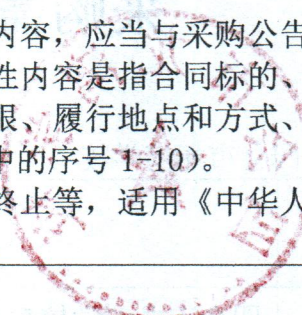 内容，应当与采购公告
性内容是指合同标的、
限、履行地点和方式、
中的序号1-10)。
终止等，适用《中华人